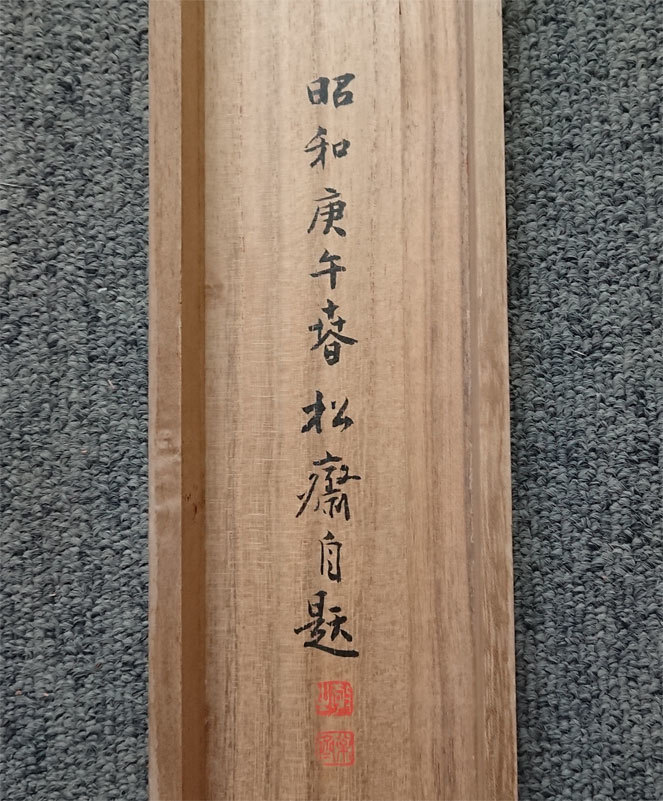 昭和庚午春松齋自題